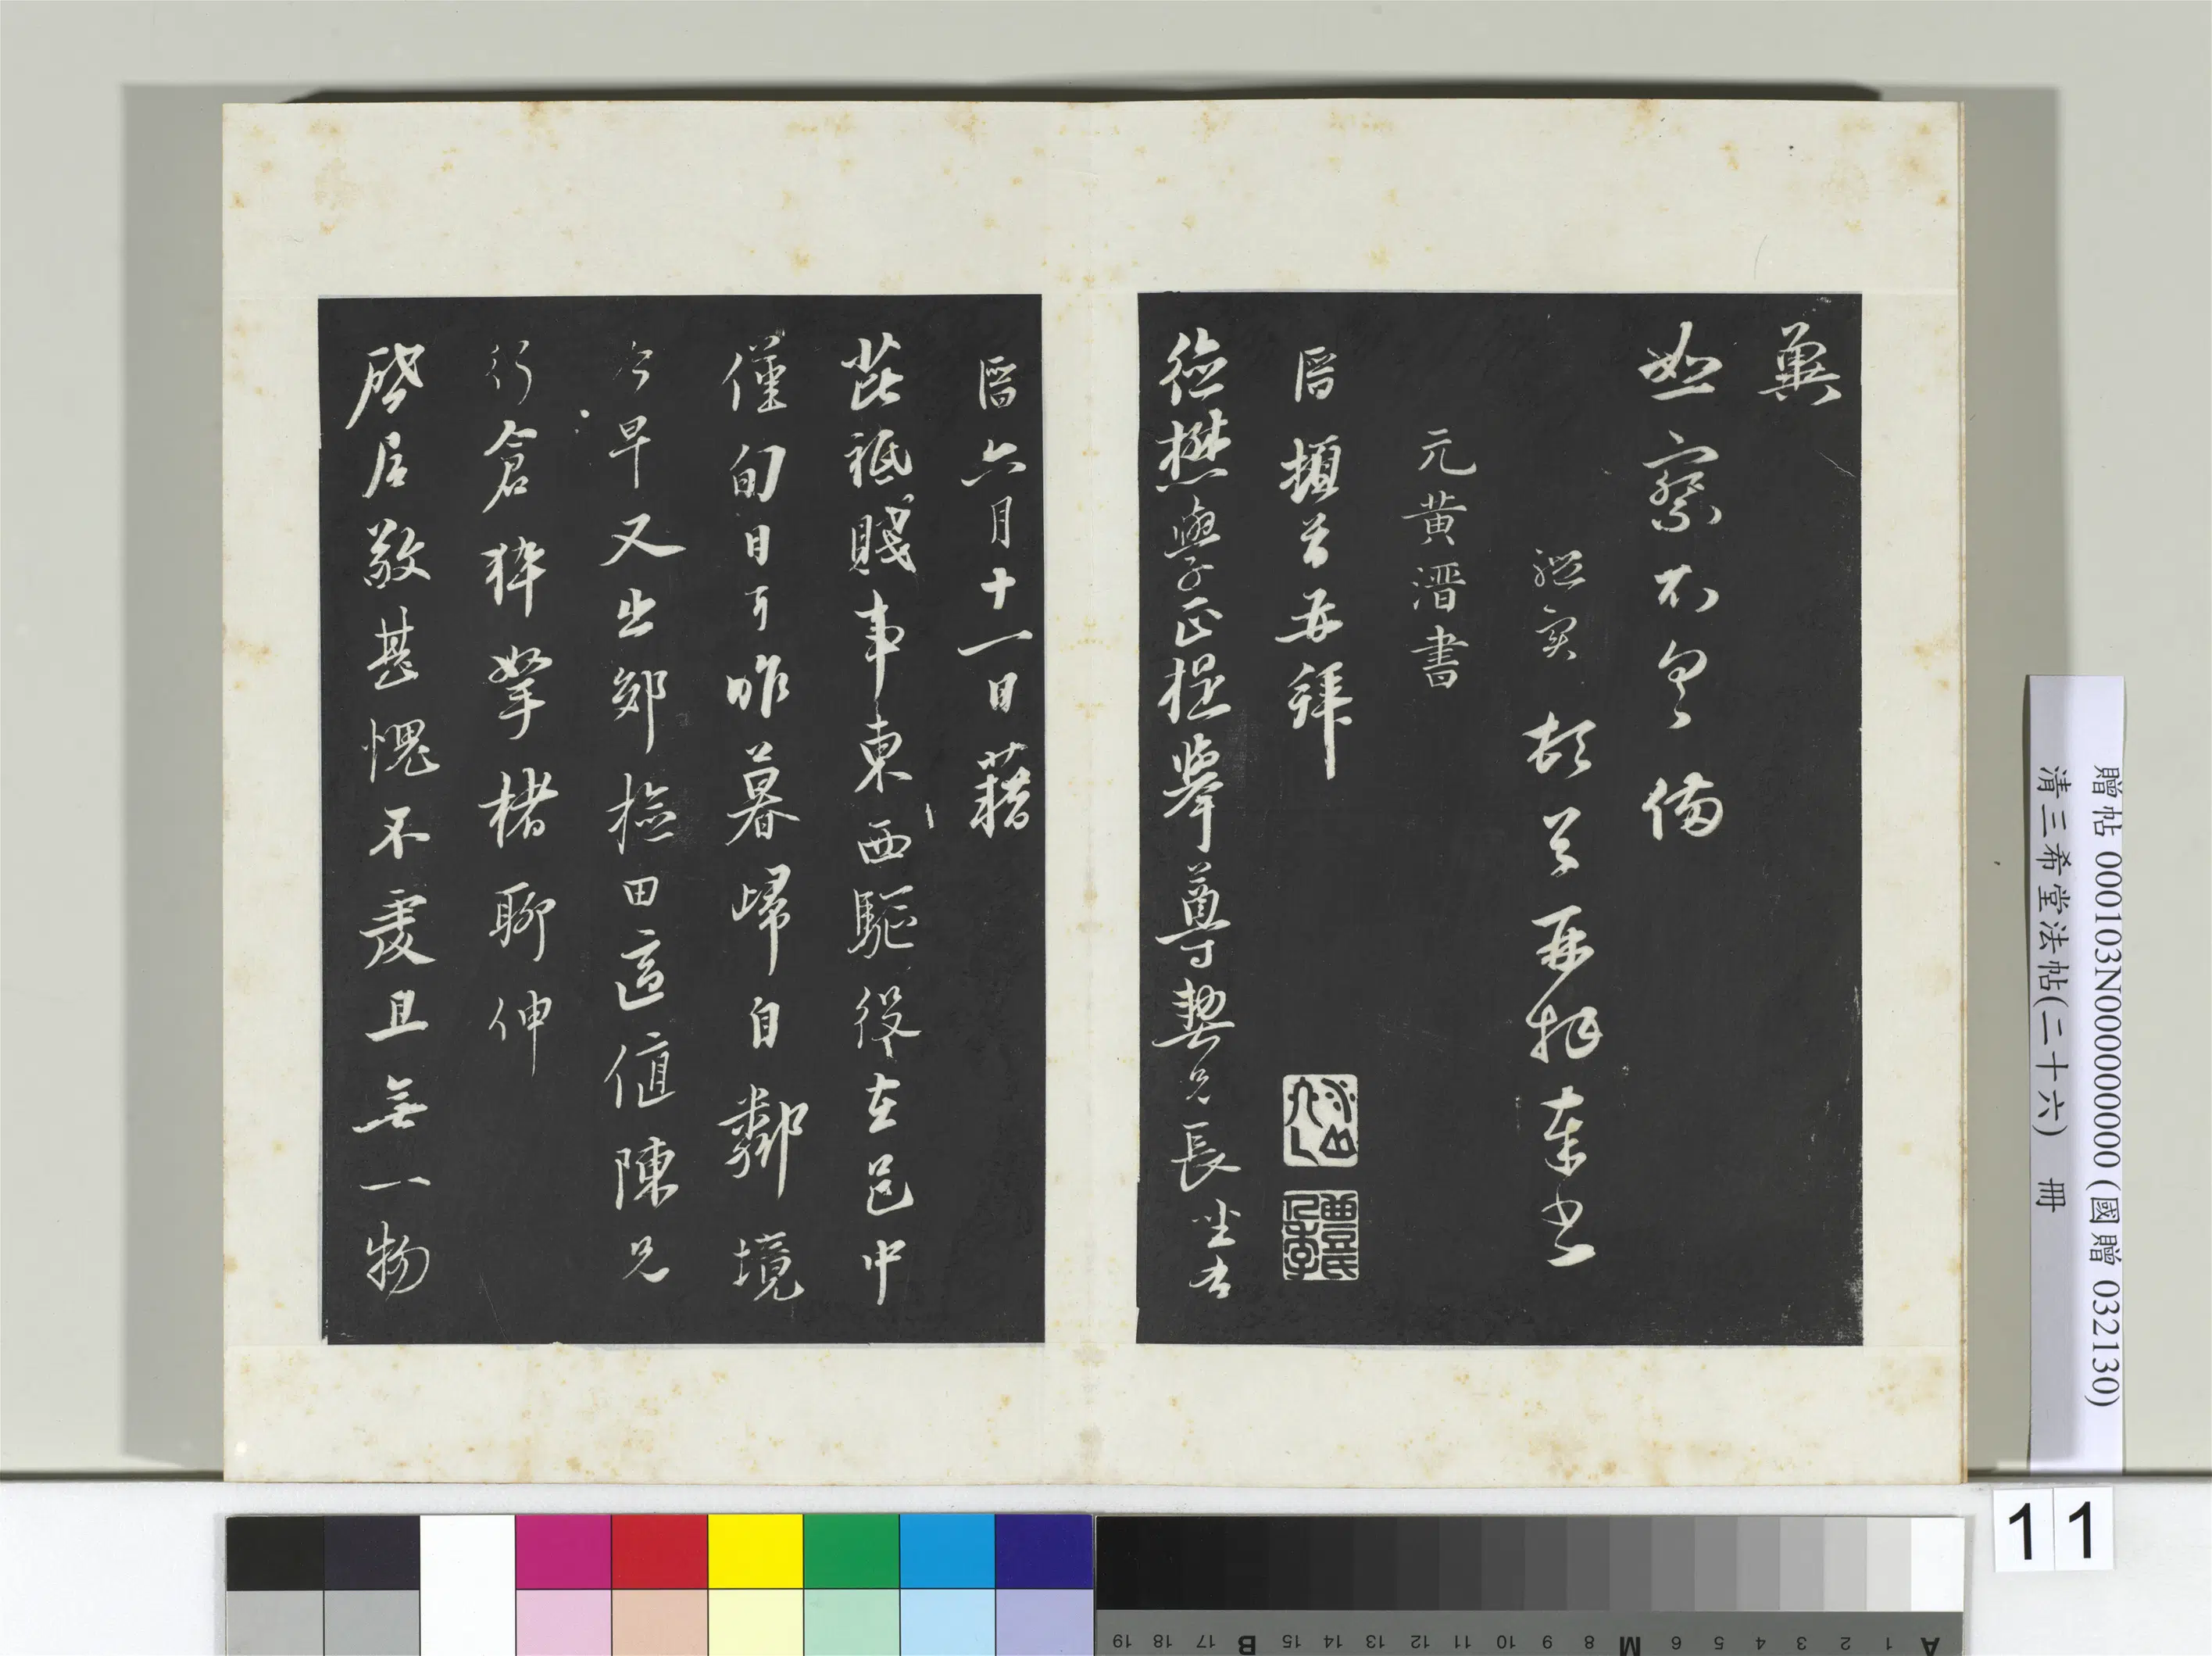 冀
照察不宣備
頓首再拜奉書
元黃溍書
溍頓首再拜
德懋學正提舉尊契兄長坐右
溍六月十一日藉
芘祗賤事東西驅役在邑中
僅旬日耳昨暮歸自鄰境
今早又出郊撿田適值陳兄
行倉猝拏楮聊伸
啓居敬甚愧不虔且無一物
贈帖 000103N000000000 (國贈 032130)
清三希堂法帖(二十六) 冊
11
A 1 2 3 4 5 6 M 8 9 10 11 12 13 14 15 B 17 18 19